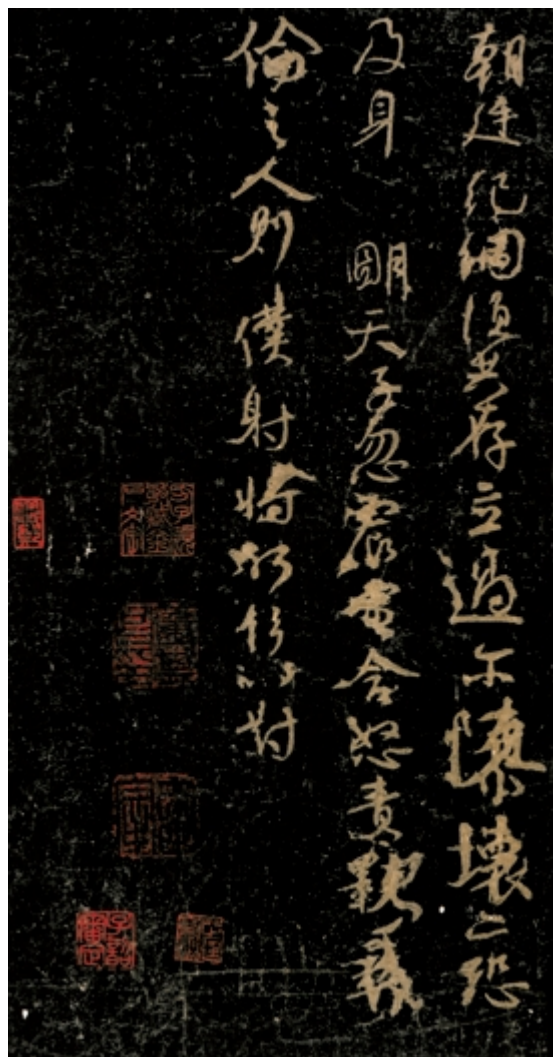 朝廷紀綱須共存立過尓隳壞亦恐
及身 朙天子忽震電含怒責斁彝
倫之人則僕射將何辭以對